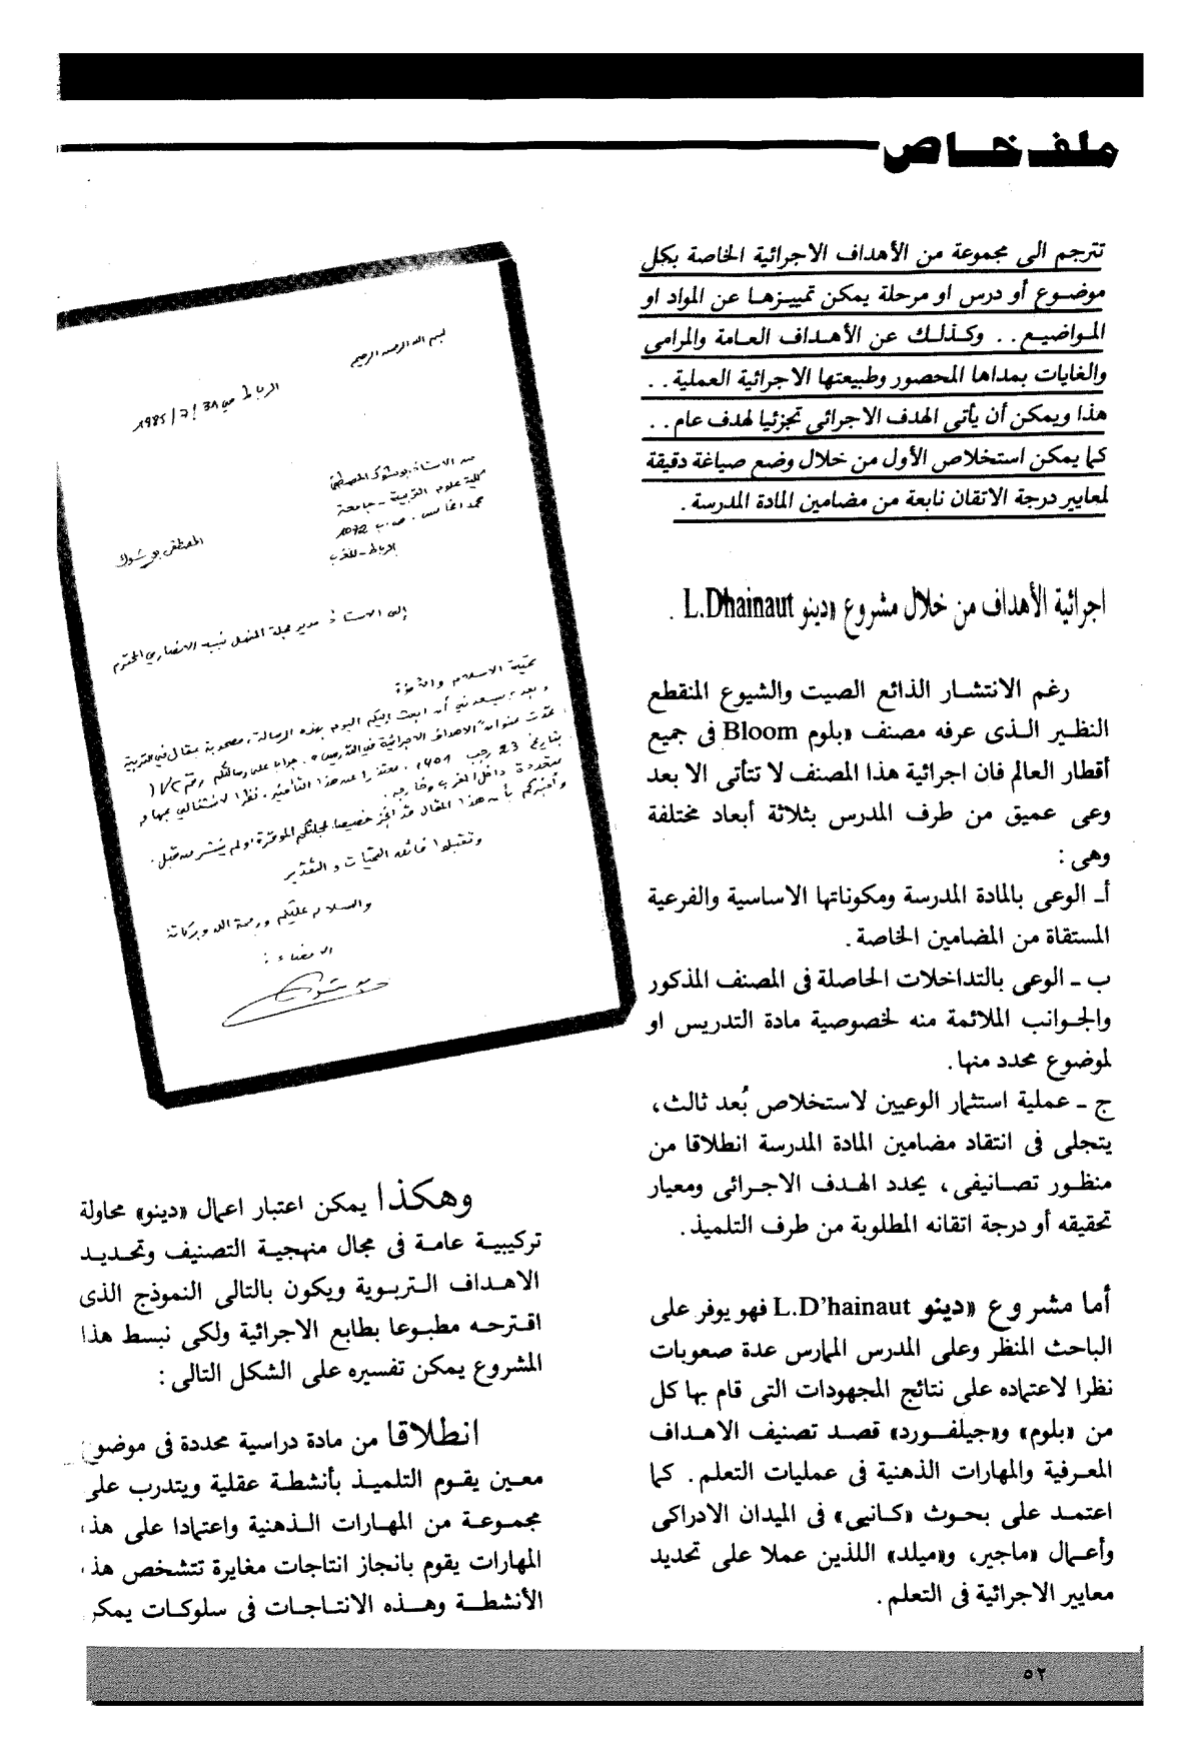 ملف خاص
تترجم الى مجموعة من الأهداف الاجرائية الخاصة بكل
موضوع أو درس او مرحلة يمكن تمييزها عن المواد او
المواضيع .. وكذلك عن الأهداف العامة والمرامى
والغايات بمداها المحصور وطبيعتها الاجرائية العملية ..
هذا ويمكن أن يأتى الهدف الاجرائى تجزئيا لهدف عام ..
كما يمكن استخلاص الأول من خلال وضع صياغة دقيقة
لمعايير درجة الاتقان نابعة من مضامين المادة المدرسة .
اجرائية الأهداف من خلال مشروع «دينو L.Dhainaut .
رغم الانتشار الذائع الصيت والشيوع المنقطع
النظير الذى عرفه مصنف «بلوم Bloom فى جميع
أقطار العالم فان اجرائية هذا المصنف لا تتأتى الا بعد
وعى عميق من طرف المدرس بثلاثة أبعاد مختلفة
وهى :
أـ الوعى بالمادة المدرسة ومكوناتها الاساسية والفرعية
المستقاة من المضامين الخاصة .
ب ـ الوعى بالتداخلات الحاصلة فى المصنف المذكور
والجوانب الملائمة منه لخصوصية مادة التدريس او
لموضوع محدد منها .
ج ـ عملية استثمار الوعيين لاستخلاص بُعد ثالث ،
يتجلى فى انتقاد مضامين المادة المدرسة انطلاقا من
منظور تصانيفى ، يحدد الهدف الاجرائى ومعيار
تحقيقه أو درجة اتقانه المطلوبة من طرف التلميذ .
أما مشروع «دينو L.D’hainaut فهو يوفر على
الباحث المنظر وعلى المدرس الممارس عدة صعوبات
نظرا لاعتماده على نتائج المجهودات التى قام بها كل
من «بلوم» و«جيلفورد» قصد تصنيف الاهداف
المعرفية والمهارات الذهنية فى عمليات التعلم . كما
اعتمد على بحوث «كانيى» فى الميدان الادراكى
وأعمال «ماجير، و«ميلد» اللذين عملا على تحديد
معايير الاجرائية فى التعلم .
بسم الله الرحمن الرحيم
الرباط في 1985/7/31
من الاستاذ بوشوك المصطفى
كلية علوم التربية - جامعة
محمد الخامس . ص.ب 1072
الرباط - المغرب
المصطفى بوشوك
إلى الاستاذ مدير مجلة المنهل نبيه الانصاري المحترم
تحية الاسلام
وتقبلوا فائق التحيات والتقدير
والسلام عليكم ورحمة الله وبركاته
الامضاء :
وهكذا يمكن اعتبار اعمال «دينو» محاولة
تركيبية عامة فى مجال منهجية التصنيف وتحديد
الاهداف التربوية ويكون بالتالى النموذج الذى
اقترحه مطبوعا بطابع الاجرائية ولكى نبسط هذا
المشروع يمكن تفسيره على الشكل التالى :
انطلاقا من مادة دراسية محددة فى موضوع
معين يقوم التلميذ بأنشطة عقلية ويتدرب على
مجموعة من المهارات الذهنية واعتمادا على هذه
المهارات يقوم بانجاز انتاجات مغايرة تتشخص هذه
الأنشطة وهذه الانتاجات فى سلوكات يمكن
٥٢